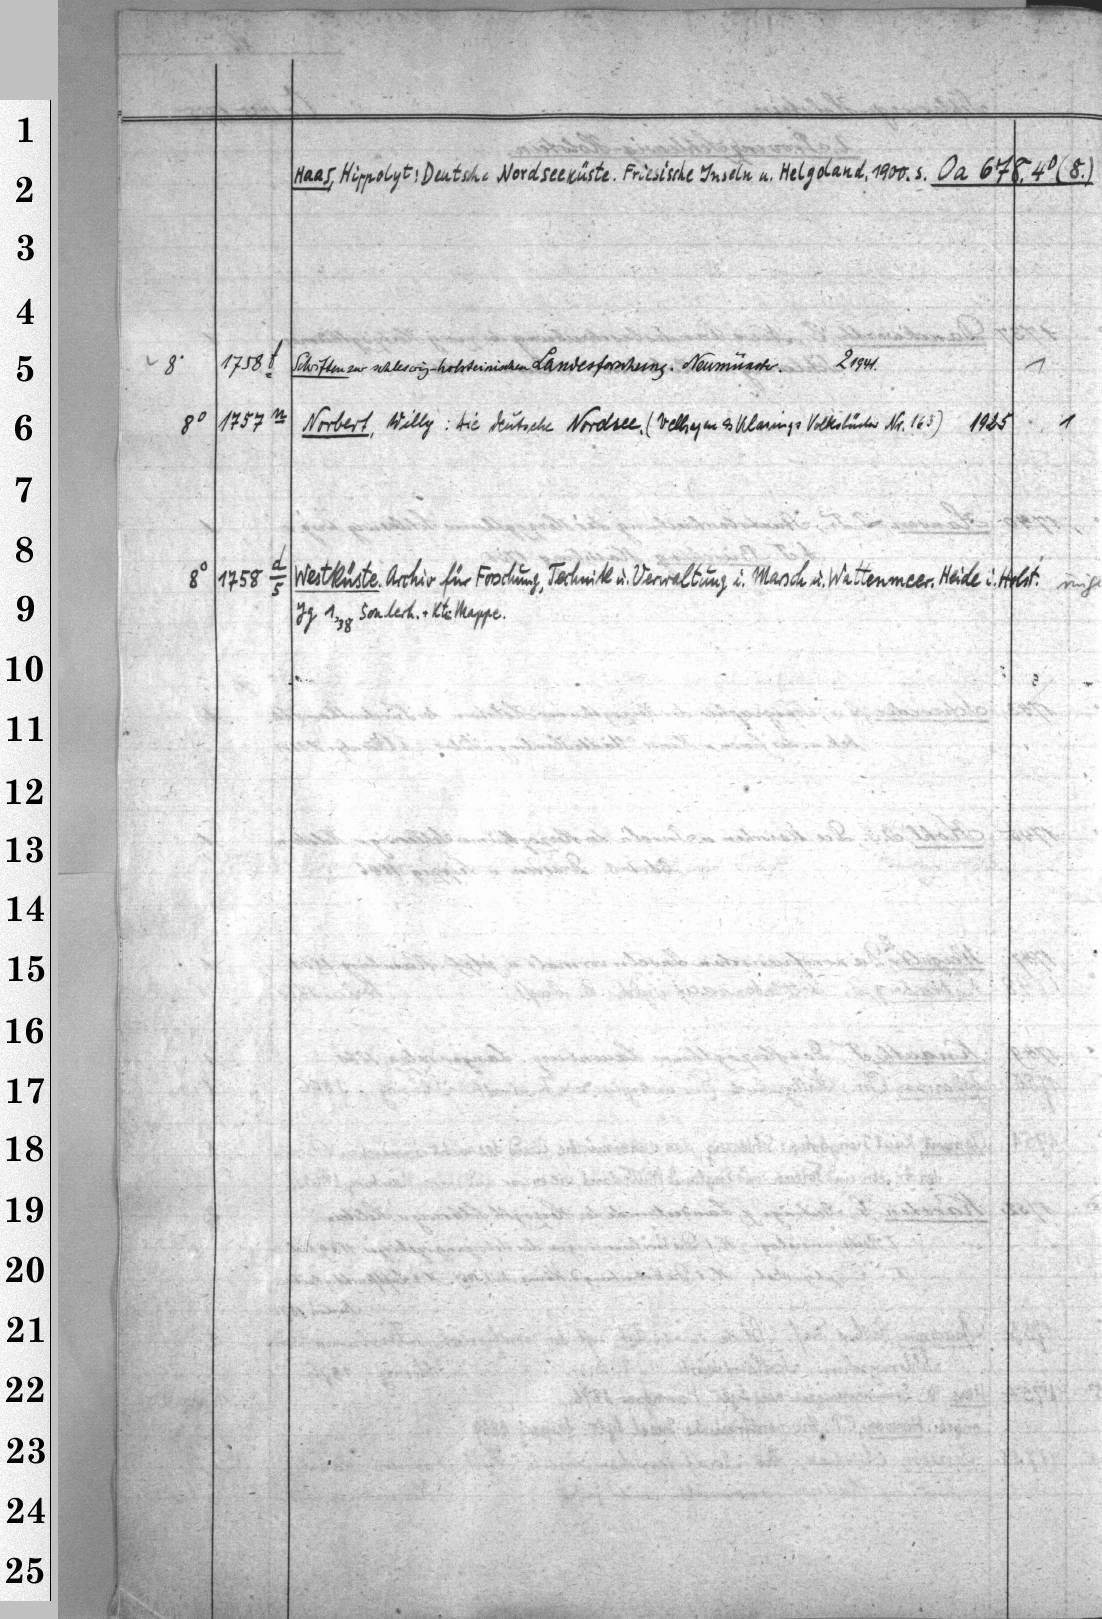 Haas, Hippolyt: Deutsche Nordseeküste. Friesische Inseln u. Helgoland, 1900. s. Oa 678, 4° (8.)
8° 1758 f Schriften zur schleswig-holsteinischen Landesforschung. Neumünster. 2 1941. 1
8° 1757 m Norbert, Willy: Die deutsche Nordsee. (Velhagen & Klasings Volksbücher Nr. 163) 1925 1
8° 1758 d/5 Westküste. Archiv für Forschung, Technik u. Verwaltung i. Marsch u. Wattenmeer. Heide i. Holst.
Jg 1,38 Sonderh. + Kte Mappe.
1
2
3
4
5
6
7
8
9
10
11
12
13
14
15
16
17
18
19
20
21
22
23
24
25